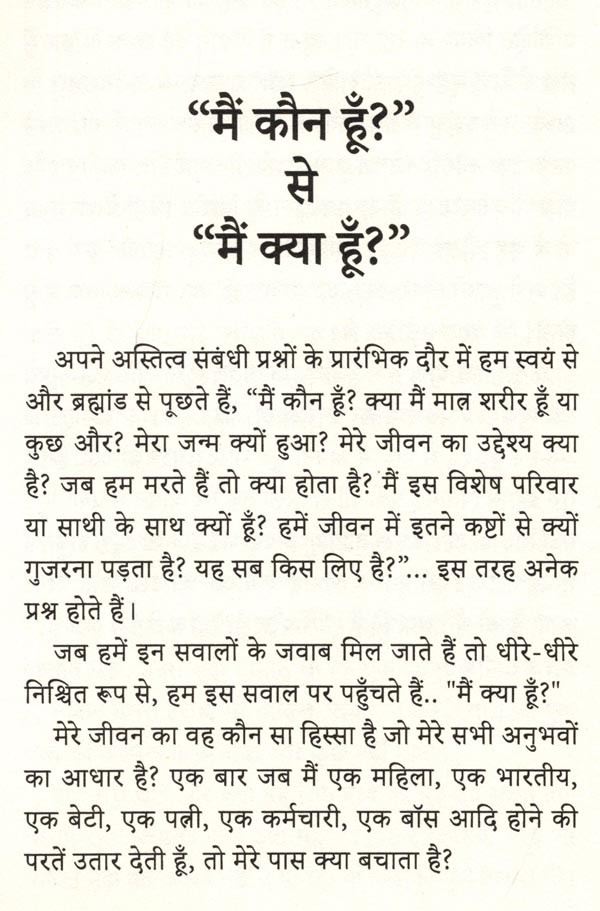 “मैं कौन हूँ?”
से
“मैं क्या हूँ?”
अपने अस्तित्व संबंधी प्रश्नों के प्रारंभिक दौर में हम स्वयं से
और ब्रह्मांड से पूछते हैं, “मैं कौन हूँ? क्या मैं मात्र शरीर हूँ या
कुछ और? मेरा जन्म क्यों हुआ? मेरे जीवन का उद्देश्य क्या
है? जब हम मरते हैं तो क्या होता है? मैं इस विशेष परिवार
या साथी के साथ क्यों हूँ? हमें जीवन में इतने कष्टों से क्यों
गुजरना पड़ता है? यह सब किस लिए है?”... इस तरह अनेक
प्रश्न होते हैं।
जब हमें इन सवालों के जवाब मिल जाते हैं तो धीरे-धीरे
निश्चित रूप से, हम इस सवाल पर पहुँचते हैं.. "मैं क्या हूँ?"
मेरे जीवन का वह कौन सा हिस्सा है जो मेरे सभी अनुभवों
का आधार है? एक बार जब मैं एक महिला, एक भारतीय,
एक बेटी, एक पत्नी, एक कर्मचारी, एक बॉस आदि होने की
परतें उतार देती हूँ, तो मेरे पास क्या बचाता है?